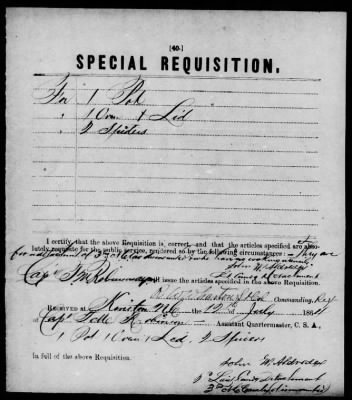 [40.]
SPECIAL REQUISITION.
For 1 Pot
" 1 Oven & Lid
" 2 Spiders
I certify that the above Requisition is correct, and that the articles specified are abso-
lutely requisite for the public service, rendered so by the following circumstances: They are
for a detachment of 3rd N.C. Cav dismounted who having no cooking utensils
John W. Aldredge
Lt Comdg Detachment
Capt
will issue the articles specified in the above Requisition.
Commanding Reg
Received at Kinston N.C. the 12 of July 1864
of Capt Robinson Assistant Quartermaster, C. S. A.,
1 Pot 1 Oven 1 Led, 2 Spiders
In full of the above Requisition.
John W Aldredge
Detachment